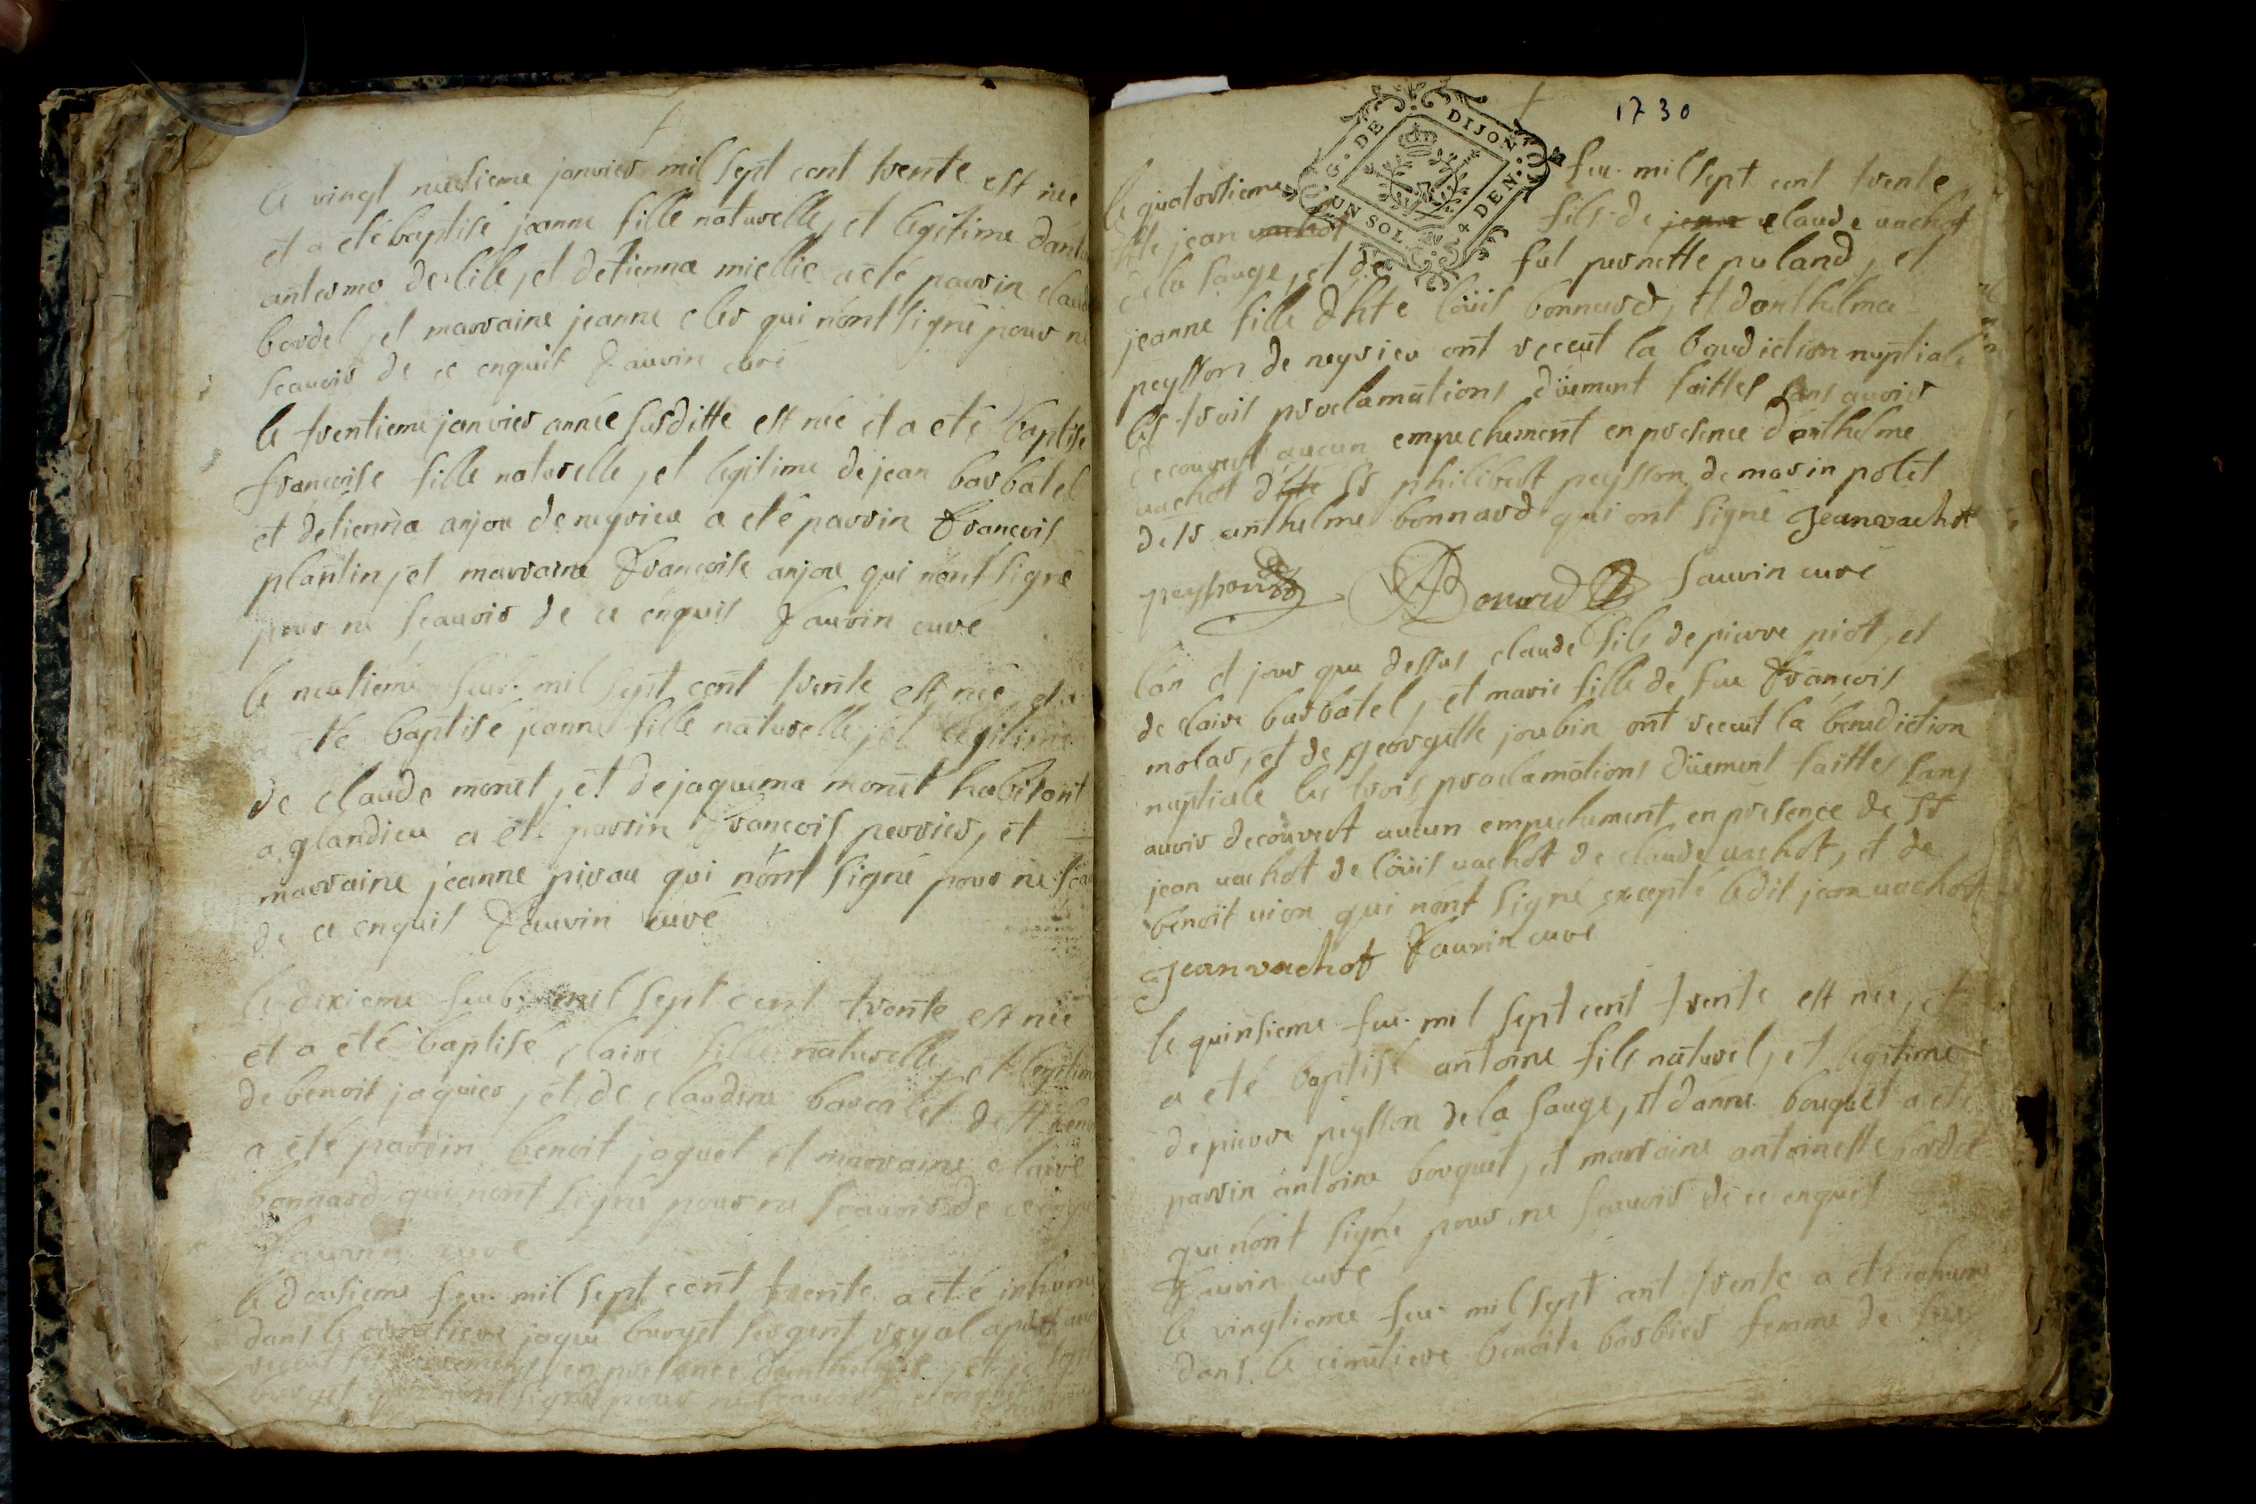 le vingt neufieme janvier mil sept cent trente est née
et a eté baptisé jeanne fille naturelle, et legitime
de lille, et detienna miellie a eté parrin claud
bordel, et marraine jeanne cler qui n'ont signé pour ne
scauoir de ce enquis fauvin curé
le trentieme janvier année susditte est née et a eté baptise
francoise fille naturelle, et legitime de jean barbatel
et detienna anjou de neyrieu a eté parrin francois
plantin, et marraine francoise anjou qui n'ont signé
pour ne scauoir de ce enquis fauvin curé
le neufieme feur. mil sept cent trente est née et a
eté baptisé jeanne fille naturelle, et legitime
de claude monet, et de jaquema monet habitant
a glandieu a eté parrin francois perrier, et
marraine jeanne pivau qui n'ont signé pour ne
de ce enquis fauvin curé
le dixieme feub. mil sept cent trente est née
et a eté baptisé claire fille naturelle, et legitime
de benoit jaquier, et de claudine
a eté parrin benoit jaquet et marraine claire
bonnard qui n'ont signé pour ne scauoir de ce
fauvin curé
le dousieme feu. mil sept cent trente a eté inhumé
dans le cimetiere jaque burget sergent royal apres
receu ses sacremens en presence danthelme
burget qui n'ont signé pour ne scauoir
1730
G. DE DIJON
UN SOL. 4 DEN.
le quatorsieme feu. mil sept cent trente
jean vachot fils de jean claude vachot
de la sauge, et de fut pernette puland, et
jeanne fille d'hte loüis bonnard, et d'anthelma
peysson de neyrieu ont receut la benediction nuptiale
les trois proclamations düement faittes sans avoir
decouvert aucun empechement en presence d'anthelme
vachot d'hte sr philibert peysson de marin polet
de sr anthelme bonnard qui ont signé Jean vachot
peysson Bonard fauvin curé
l'an et jour que dessus claude fils de pierre piot, et
de claire barbatel, et marie fille de feu francois
molar, et de georgette joubin ont receut la benediction
nuptiale les trois proclamations düement faittes sans
avoir decouvert aucun empechement en presence de sr
jean vachot de loüis vachot de claude vachot, et de
benoit vion qui n'ont signé excepté ledit jean vachot
Jean vachot fauvin curé
le quinsieme feu. mil sept cent trente est née, et
a eté baptisé antoine fils naturel, et legitime
de pierre peysson de la sauge, et d'anne bouquet a eté
parrin antoine bouquet, et marraine antoinette bordel
qui n'ont signé pour ne scauoir de ce enquis
fauvin curé
le vingtieme feu. mil sept cent trente a eté inhumé
dans le cimetiere benoite barbier femme de feu